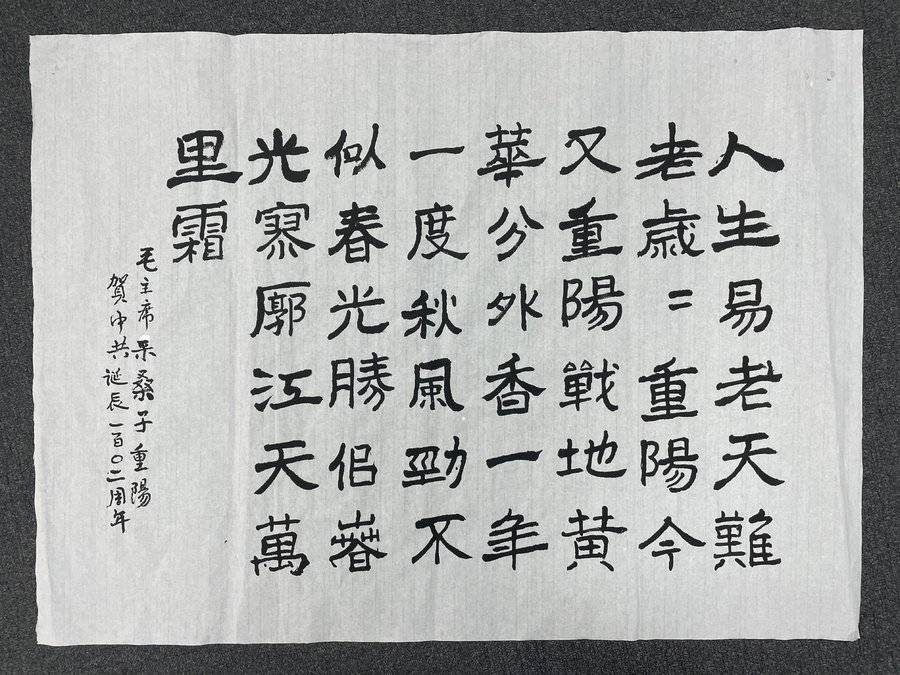 人生易老天難
老歲〻重陽今
又重陽戰地黃
華分外香一年
一度秋風勁不
似春光勝佀萅
光寥廓江天萬
里霜
毛主席采桑子重陽
賀中共诞辰一百〇二周年